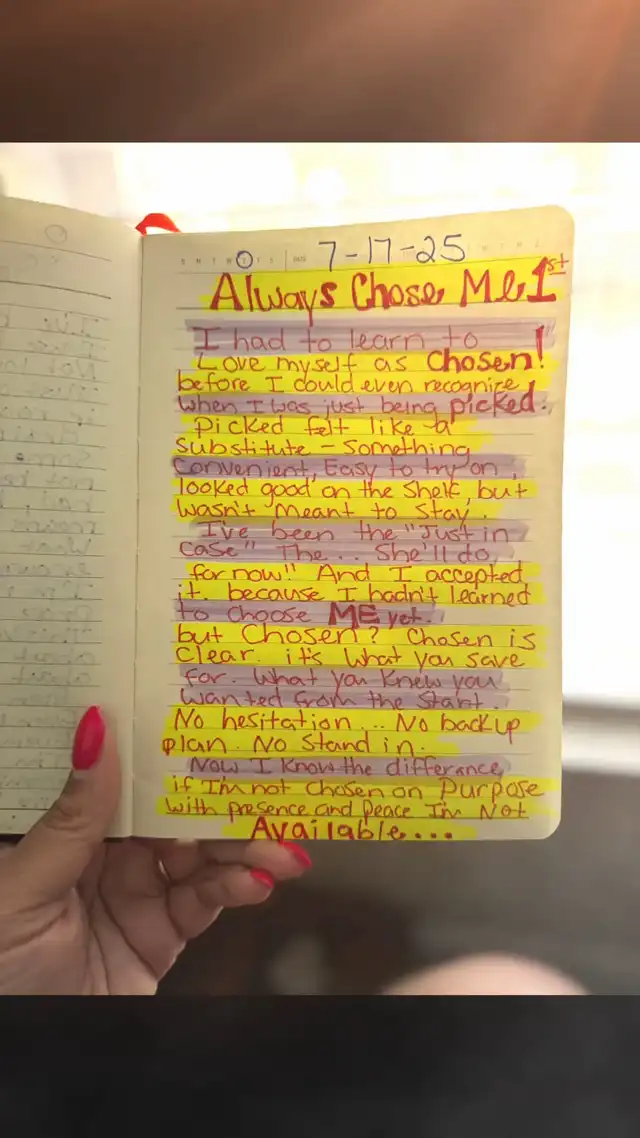 7-17-25
Always Chose Me 1st
I had to learn to
Love myself as Chosen!
before I could even recognize
when I was just being picked.
Picked felt like a
Substitute - Something
Convenient, Easy to try on,
looked good on the Shelf, but
wasn't meant to stay.
I've been the "Just in
Case" The... She'll do
for now!" And I accepted
it. because I hadn't learned
to choose ME yet.
but Chosen? Chosen is
Clear. it's what you save
for. What you knew you
wanted from the Start.
No hesitation... No backup
plan. No Stand in.
Now I know the difference,
if I'm not chosen on Purpose
with presence and Peace I'm Not
Available...